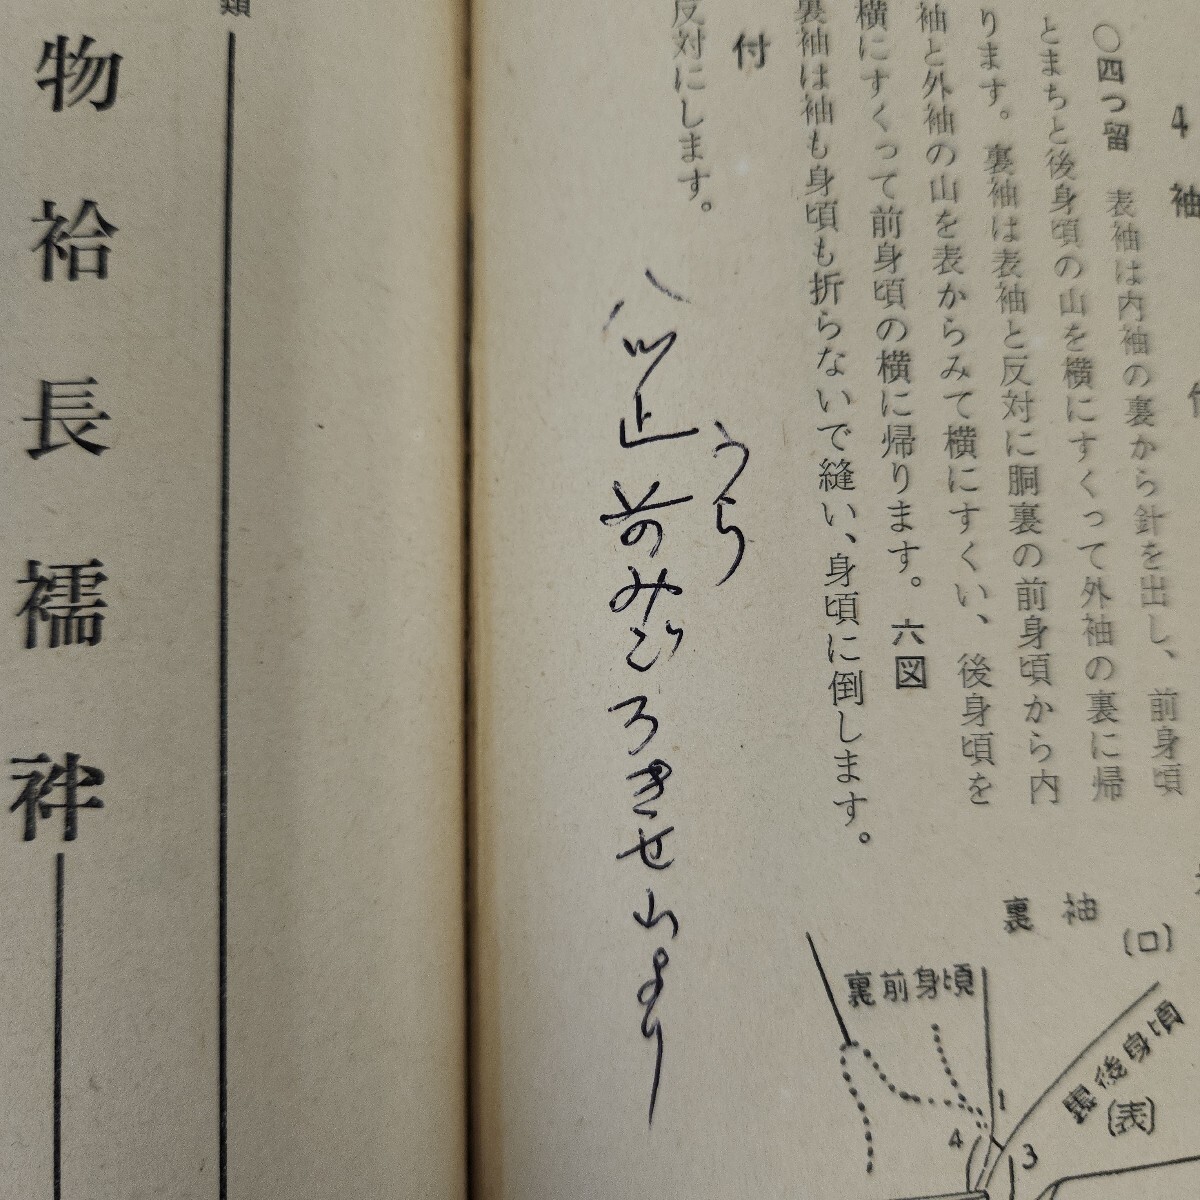 4 袖
〇四つ留 表袖は内袖の裏から針を出し、前身頃
とまちと後身頃の山を横にすくって外袖の裏に帰
ります。裏袖は表袖と反対に胴裏の前身頃から内
袖と外袖の山を表からみて横にすくい、後身頃を
横にすくって前身頃の横に帰ります。六図
裏袖は袖も身頃も折らないで縫い、身頃に倒します。
付
反対にします。
うら
止 前のみごろきせ山より
裏袖
(ロ)
裏前身頃
裏後身頃
(表)
1
4
3
類
物袷長襦袢